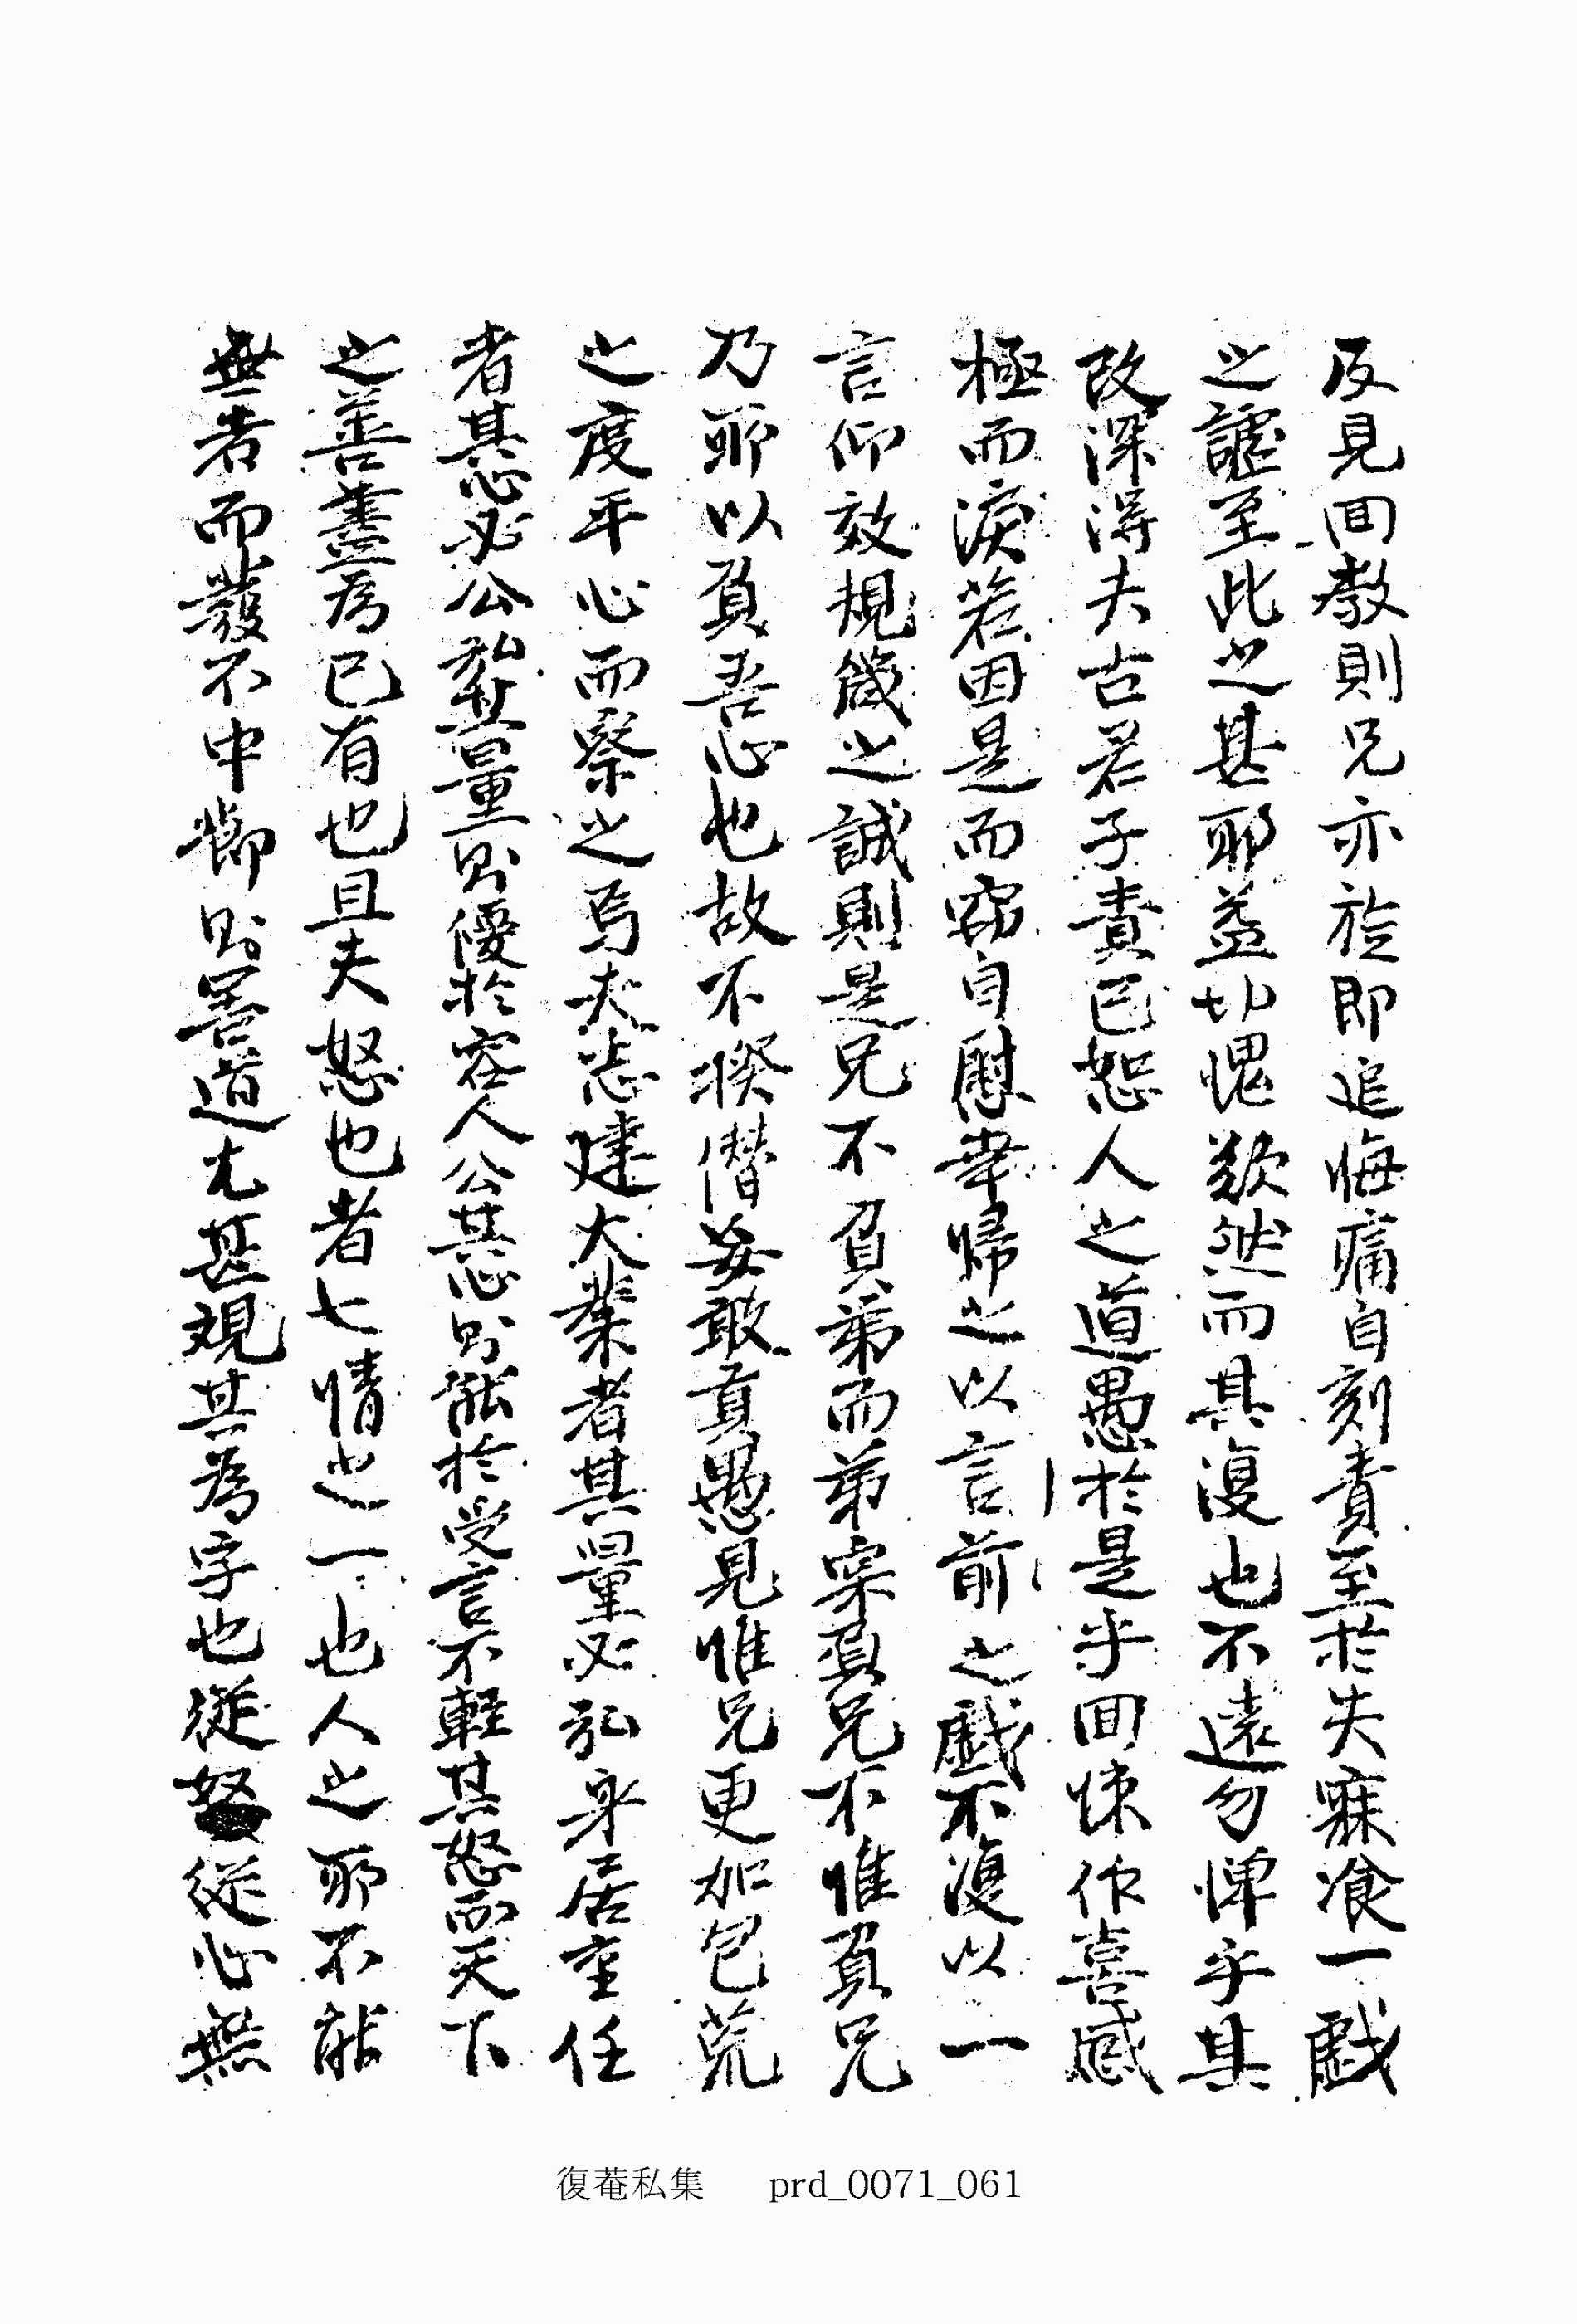 反見回教則兄亦旋即追悔痛自刻責至於失寐飡一戱
之謔至此之甚耶益切愧歎然而其復也不遠勿憚乎其
改深得夫古君子責己恕人之道愚於是乎回悚作喜感
極而淚若因是而竊自慰幸歸之以言前之戱不復以一
言仰效規箴之誠則是兄不負弟而弟宲負兄不惟負兄
乃所以負吾心也故不揆僭妄敢貢愚見惟兄更加包荒
之度平心而察之焉夫志建大業者其量必弘身居重任
者其心必公弘其量則優於容人公其心則能於受言不輕其怒而天下
之善盡爲己有也且夫怒也者七情之一也人之所不能
無者而發不中節則害道尤甚觀其爲字也從奴從心無
復菴私集 prd_0071_061